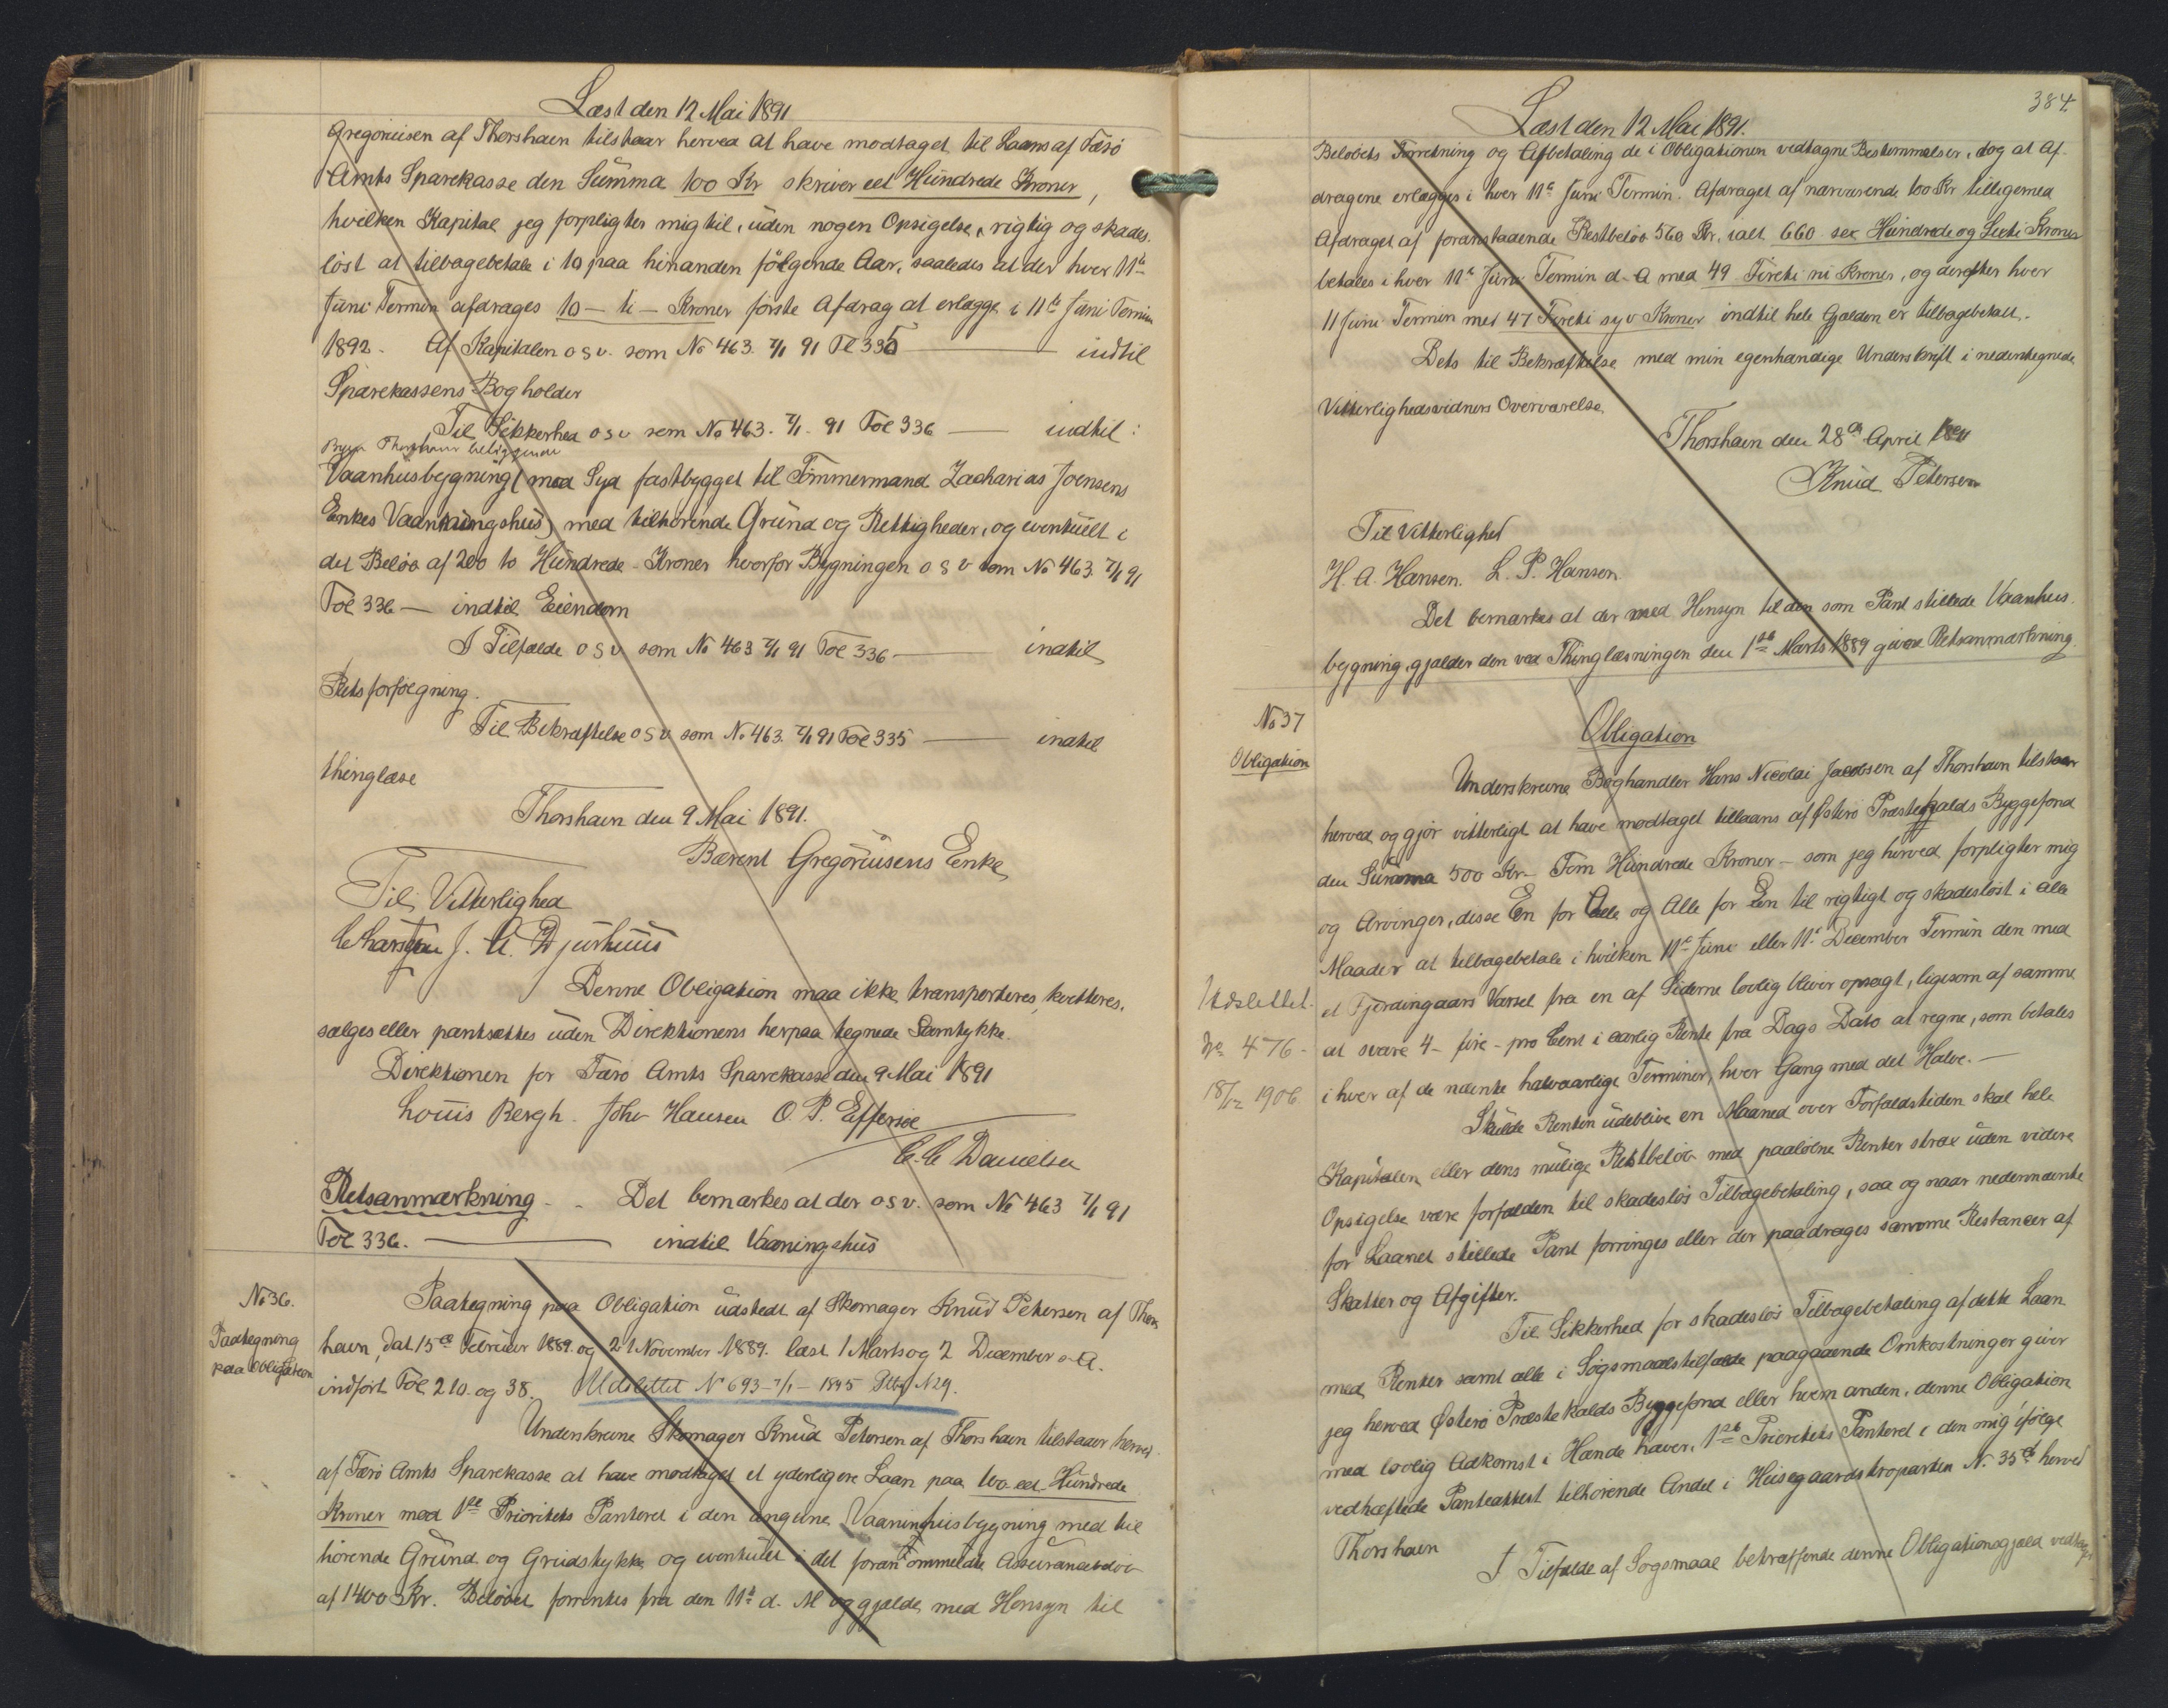 Læst den 12 Mai 1891
Gregoriusen af Thorshavn tilstaar herved at have modtaget til Laans af Færø
Amts Sparekasse den Summa 100 Kr skriver eet Hundrede Kroner,
hvilken Kapital jeg forpligter mig til, uden nogen Opsigelse, rigtig og skades
løst at tilbagebetale i 10 paa hinanden følgende Aar, saaledes at der hver 11te
Juni Termin afdrages 10 – ti – Kroner første Afdrag at erlægge i 11te Juni Termin
1892. Af Kapitalen o s v. som No 463. 7/1 91 Fol 335 — indtil
Sparekassens Bogholder
Til Sikkerhed o s v som No 463. 7/1 91 Fol 336 — indtil:
Thorshavn beliggende
Vaanhusbygning (mod Syd fastbygget til Tømmermand Zacharias Joensens
Enkes Vaaningshus) med tilhørende Grund og Rettigheder, og eventuelt i
det Beløb af 200 to Hundrede Kroner hvorfor Bygningen o s v som No 463. 7/1 91
Fol 336 — indtil Eiendom
I Tilfælde o s v som No 463 7/1 91 Fol 336 — indtil
Retsforfølgning.
Til Bekræftelse o s v som No 463. 7/1 91 Fol 335 — indtil
thinglæse
Thorshavn den 9 Mai 1891.
Bærent Gregoriusens Enke
Til Vitterlighed
J. C. Djurhuus
Denne Obligation maa ikke transporteres, kvitteres,
sælges eller pantsættes uden Direktionens herpaa tegnede Samtykke.
Direktionen for Færø Amts Sparekasse den 9 Mai 1891
Louis Bergh. Johs Hansen O. P. Effersøe
C. C Danielsen
Retsanmærkning - - Det bemærkes at der o s v. som No 463 7/1 91
Fol 336. — indtil Vaaningshus
No 36.
Paategning
paa Obligation
Paategning paa Obligation udstedt af Skomager Knud Petersen af Thors
havn, dat 15de Februar 1889. og 21 November 1889. læst 1 Marts og 2 December s. A.
indført Fol 210. og 38. Udslettet No 693 - 7/1 - 1895 Ptbg N 29.
Underskrevne Skomager Knud Petersen af Thorshavn tilstaaer herved
af Færø Amts Sparekasse at have modtaget et yderligere Laan paa 100 eet Hundrede
Kroner mod 1ste Prioritets Panteret i den angivne Vaaninghusbygning med til
hørende Grund og Grudstykke og eventuelt i det foran ommeldte Assurancebeløb
af 1400 Kr. Beløbet forrentes fra den 11te d. M og gjælde med Hensyn til
384.
Læst den 12 Mai 1891.
Beløbets Forretning og Afbetaling de i Obligationen vedtagne Bestemmelser, dog at Af
dragene erlægges i hver 11te Juni Termin. Afdraget af nærværende 100 Kr tilligemed
Afdraget af foranstaaende Restbeløb 560 Kr. ialt 660 sex Hundrede og Sexti Kroner
betales i hver 11te Juni Termin d. A med 49 Fireti ni Kroner, og derefter hver
11 Juni Termin met 47 Fireti syv Kroner indtil hele Gjælden er tilbagebetalt.
Dets til Bekræftelse med min egenhændige Underskrift i nedentegnede
Vitterlighedsvidners Overværelse
Thorshavn den 28de April 1891
Knud Petersen
Til Vitterlighed
H. A. Hansen. L. P. Hansen
Det bemærkes at der med Hensyn til den som Pant stillede Vaanhus
bygning, gjælder den ved Thinglæsningen den 1ste Marts 1889 givne Retsanmærkning.
No 37
Obligation
Obligation
Underskrevne Boghandler Hans Nicolai Jacobsen af Thorshavn tilstaar
herved og gjør vitterligt at have modtaget tillaans af Østerø Præstekalds Byggefond
den Summa 500 Kr - Fem Hundrede Kroner - som jeg herved forpligter mig
og Arvinger, disse En for Alle og Alle for Een til rigtigt og skadesløst i alle
Maader at tilbagebetale i hvilken 11te Juni eller 11te December Termin den med
et Fjerdingaars Varsel fra en af Siderne lovlig bliver opsagt, ligesom af samme
at svare 4 - fire - pro Cent i aarlig Rente fra Dags Dato at regne, som betales
i hver af de nævnte halvaarlige Terminer, hver Gang med det Halve. —
Udslettet.
No 476 -
18/12 1906
Skulde Renten udeblive en Maaned over Forfaldstiden skal hele
Kapitalen eller dens mulige Restbeløb med paaløbne Renter strax uden videre
Opsigelse være forfalden til skadesløs Tilbagebetaling, saa og naar nedennævnte
for Laanet stillede Pant forringes eller der paadrages samme Restancer af
Skatter og Afgifter.
Til Sikkerhed for skadesløs Tilbagebetaling af dette Laan
med Renter samt alle i Søgsmaalstilfælde paagaaende Omkostninger giver
jeg herved Østerø Præstekalds Byggefond eller hvem anden, denne Obligation
med lovlig Adkomst i Hænde haver, 1ste Prioritets Panteret i den mig ifølge
vedhæftede Panteattest tilhørende Andel i Husegaardstroparten N. 35 herved
Thorshavn
I Tilfælde af Søgsmaal betræffende denne Obligationsgjæld vedtager